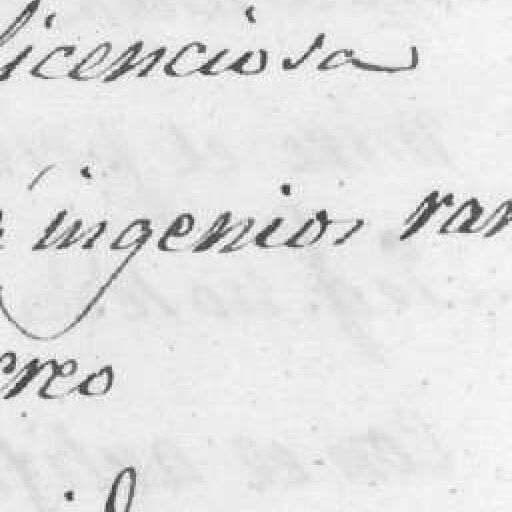 licenciosa
ingenios rar
creo